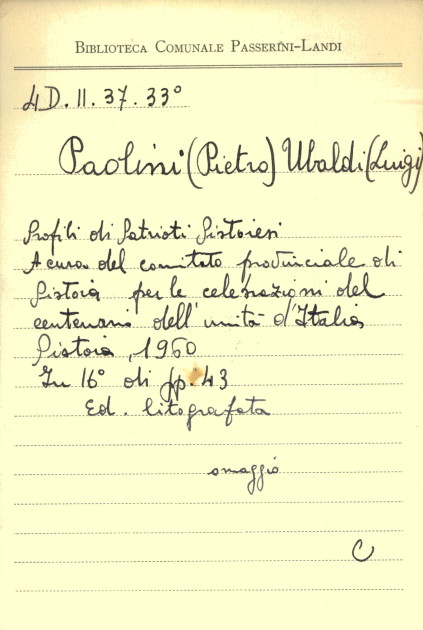 BIBLIOTECA COMUNALE PASSERINI-LANDI
4D. II. 37. 33°
Paolini (Pietro) Ubaldi (Luigi)
Profili di Patrioti Pistoiesi
A cura del comitato provinciale di
Pistoia per le celebrazioni del
centenario dell'unità d'Italia
Pistoia, 1960
In 16° di pp. 43
Ed. litografata
omaggio
C